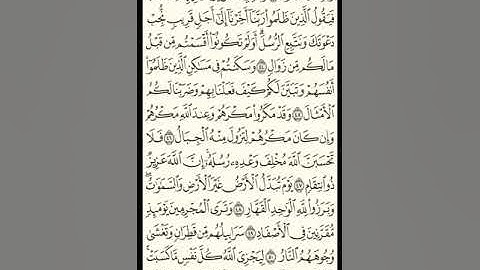 فَيَقُولُ ٱلَّذِينَ ظَلَمُوا۟ رَبَّنَآ أَخِّرْنَآ إِلَىٰٓ أَجَلٍ قَرِيبٍ نُّجِبْ
دَعْوَتَكَ وَنَتَّبِعِ ٱلرُّسُلَ ۗ أَوَلَمْ تَكُونُوٓا۟ أَقْسَمْتُم مِّن قَبْلُ
مَا لَكُم مِّن زَوَالٍ ٤٤ وَسَكَنتُمْ فِى مَسَٰكِنِ ٱلَّذِينَ ظَلَمُوٓا۟
أَنفُسَهُمْ وَتَبَيَّنَ لَكُمْ كَيْفَ فَعَلْنَا بِهِمْ وَضَرَبْنَا لَكُمُ
ٱلْأَمْثَالَ ٤٥ وَقَدْ مَكَرُوا۟ مَكْرَهُمْ وَعِندَ ٱللَّهِ مَكْرُهُمْ
وَإِن كَانَ مَكْرُهُمْ لِتَزُولَ مِنْهُ ٱلْجِبَالُ ٤٦ فَلَا
تَحْسَبَنَّ ٱللَّهَ مُخْلِفَ وَعْدِهِۦ رُسُلَهُۥٓ ۗ إِنَّ ٱللَّهَ عَزِيزٌ
ذُو ٱنتِقَامٍ ٤٧ يَوْمَ تُبَدَّلُ ٱلْأَرْضُ غَيْرَ ٱلْأَرْضِ وَٱلسَّمَٰوَٰتُ ۖ
وَبَرَزُوا۟ لِلَّهِ ٱلْوَٰحِدِ ٱلْقَهَّارِ ٤٨ وَتَرَى ٱلْمُجْرِمِينَ يَوْمَئِذٍ
مُّقَرَّنِينَ فِى ٱلْأَصْفَادِ ٤٩ سَرَابِيلُهُم مِّن قَطِرَانٍ وَتَغْشَىٰ
وُجُوهَهُمُ ٱلنَّارُ ٥٠ لِيَجْزِىَ ٱللَّهُ كُلَّ نَفْسٍ مَّا كَسَبَتْ ۚ